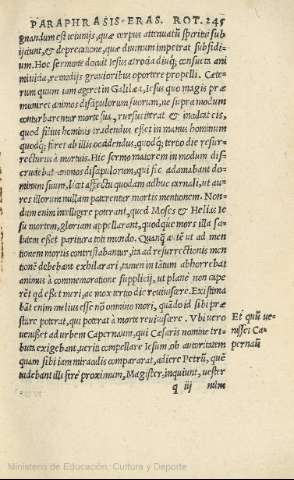 PARAPHRASIS ERAS. ROT. 245
gnandum est ieiunijs, quæ corpus attenuatũ spiritui sub
ijciunt, & deprecatione, quæ diuinum impetrat subsidi-
um. Hoc sermone docuit Iesus atrocia diuq; consueta ani
mi uitia, remedijs grauioribus oportere propelli. Cæte-
rum quum iam ageret in Galilæa, Iesus quo magis præ
muniret animos discipulorum suorum, ne supra modum
conturbarentur morte sua, rursus iterat & inculcat eis,
quod filius hominis tradendus esset in manus hominum
quodq; foret ab illis occidendus, quodq; tertio die resur-
recturus à mortuis. Hic sermo maiorem in modum dis-
cruciabat animos discipulorum, qui sic adamabant do-
minum suum, licet affectu quodam adhuc carnali, ut au-
res illorum nullam paterentur mortis mentionem. Non-
dum enim intelligere poterant, quod Moses & Helias Ie
su mortem, gloriam appellarant, quodque mors illa sa-
lutem esset paritura toti mundo. Quanq̃ autẽ ut ad men
tionem mortis contristabantur, ita ad resurrectionis men
tionẽ debebant exhilarari, tamen in tātum abhorrebat
animus à commemoratione supplicij, ut planè non cape
rẽt qd esset mori, ac mox tertio die reuiuiscere. Existima
bāt enim melius esse nõ omnino mori, quādoid sibi præ
stare poterat, qui poterat à morte reuiuiscere. Vbi uero
uenisset ad urbem Capernaum, qui Cæsaris nomine tri-
buta exigebant, ueriti compellare Iesum, ob autoritatem
quam sibi iam miraculis compararat, adiere Petrũ, quẽ
uidebant illi stare proximum, Magister, inquiunt, uester
q iij num
Et qũũ ue-
nisset Ca-
pernaũ
Ministerio de Educación, Cultura y Deporte